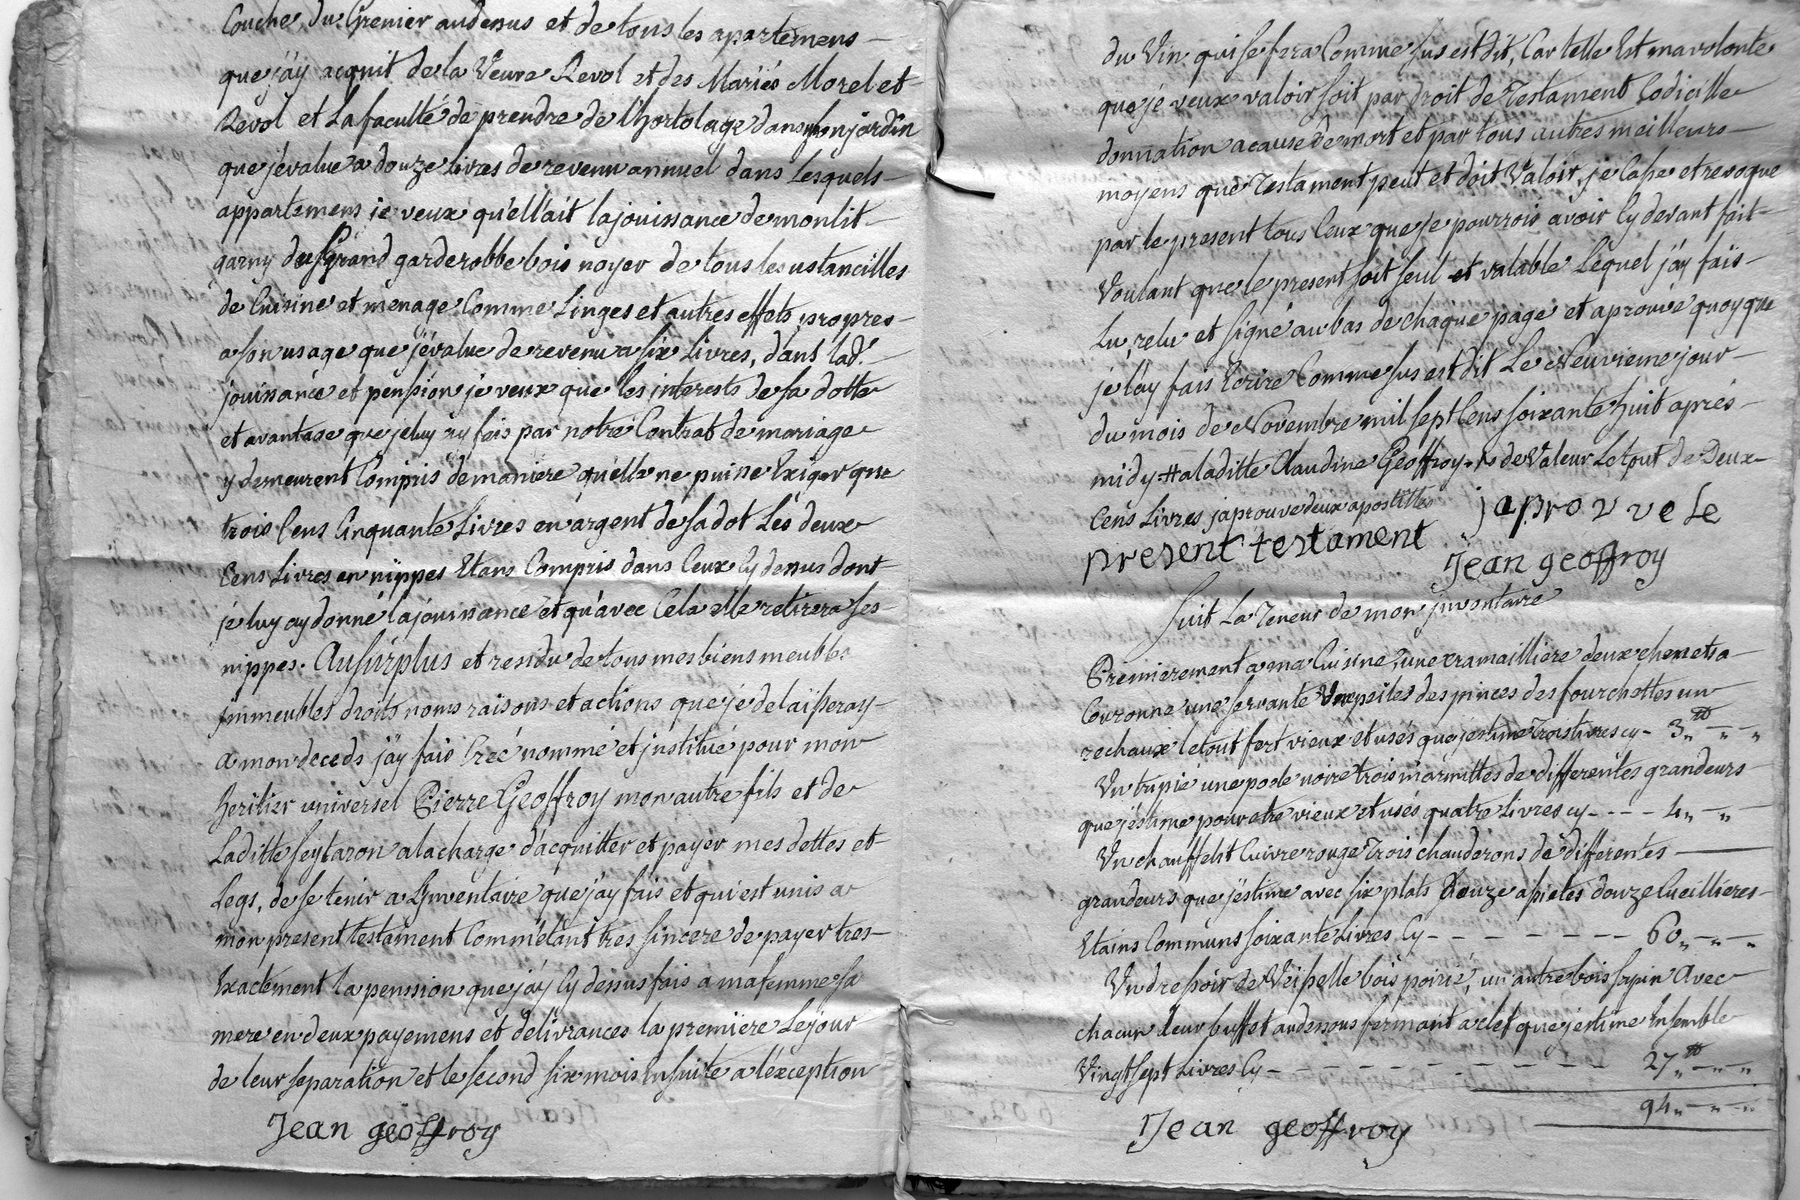 Couche du Grenier audessus et de tous les apartemens
que j'ay acquit de la Veuve Revol et des Mariés Morel et
Revol et la faculté de prendre de l'hortolage dans mon jardin
que j'évalue a douze livres de revenu annuel dans lesquels
appartemens je veux qu'ell'ait la jouissance de mon lit
garny du Grand garderobbe bois noyer de tous les ustancilles
de Cuisine et menage Comme Linges et autres effets propres
a son usage que j'évalue de revenu a six Livres, dans lad.
jouissance et pension je veux que les interests de sa dotte
et avantage que je luy ay fais par notre Contrat de mariage
y demeurent Compris de maniere qu'elle ne puisse Exiger que
trois Cens Cinquante Livres en argent de sa dot Les deux
Cens Livres en nippes Etans Compris dans Ceux Cy dessus dont
je luy ay donné la jouissance et qu'avec Cela elle retirera ses
nippes. Au surplus et residu de tous mes biens meubles
jmmeubles droits noms raisons et actions que je delaisseray
a mon deceds j'ay fais Créé nommé et jnstitué pour mon
heritier universel Pierre Geoffroy mon autre fils et de
Laditte Seytaron a la charge d'acquitter et payer mes dettes et
Legs, de se tenir a L'jnventaire que j'ay fais et qui est unis a
mon present testament Comm'étant tres sincere de payer tres
Exactement la penssion que j'ay Cy dessus fais a ma femme sa
mere en deux payemens et delivrances la premiere Le jour
de leur separation et le second six mois Ensuite a l'exception
Jean geoffroy
du Vin qui se fera Comme sus est dit, Car telle Est ma volonte
que je veux valoir soit par droit de Testament Codicille
donnation a cause de mort et par tous autres meilleurs
moyens que Testament peut et doit Valoir, je Casse et revoque
par le present tous Ceux que je pourrois avoir Cy devant fait
Voulant que le present soit seul et valable Lequel j'ay fais
Lu, relu et signé au bas de chaque page et aprouvé quoy que
je l'ay fais Ecrire Comme sus est dit Le Neuvieme jour
du mois de Novembre mil sept Cens soixante huit aprés
midy # a laditte Claudine Geoffroy de Valeur Le tout de Deux
Cens Livres j'aprouve deux apostilles japrouve Le
present testament Jean geoffroy
Suit La Teneur de mon jnventaire
Premierement a ma Cuisine, une cramailliere deux chenets a
Couronne une servante des pinces des fourchettes un
rechaux le tout fort vieux et usés que j'estime Trois livres cy - 3" " "
Un tripié une poele noire trois marmittes de differentes grandeurs
que j'estime pour etre vieux et usés quatre Livres cy - - - - 4" " "
Un chauffelit Cuivre rouge Trois chauderons de differentes
grandeurs que j'estime avec six plats douze assietes douze Cueillieres
Etains Communs soixante Livres Cy - - - - - - - 60" " "
Un dressoir de Veisselle bois poirié, un autre bois sapin Avec
chacun leur buffet au dessous fermant a clef que j'estime Ensemble
Vingt sept Livres Cy - - - - - - - - - - 27" " "
94" " "
Jean geoffroy